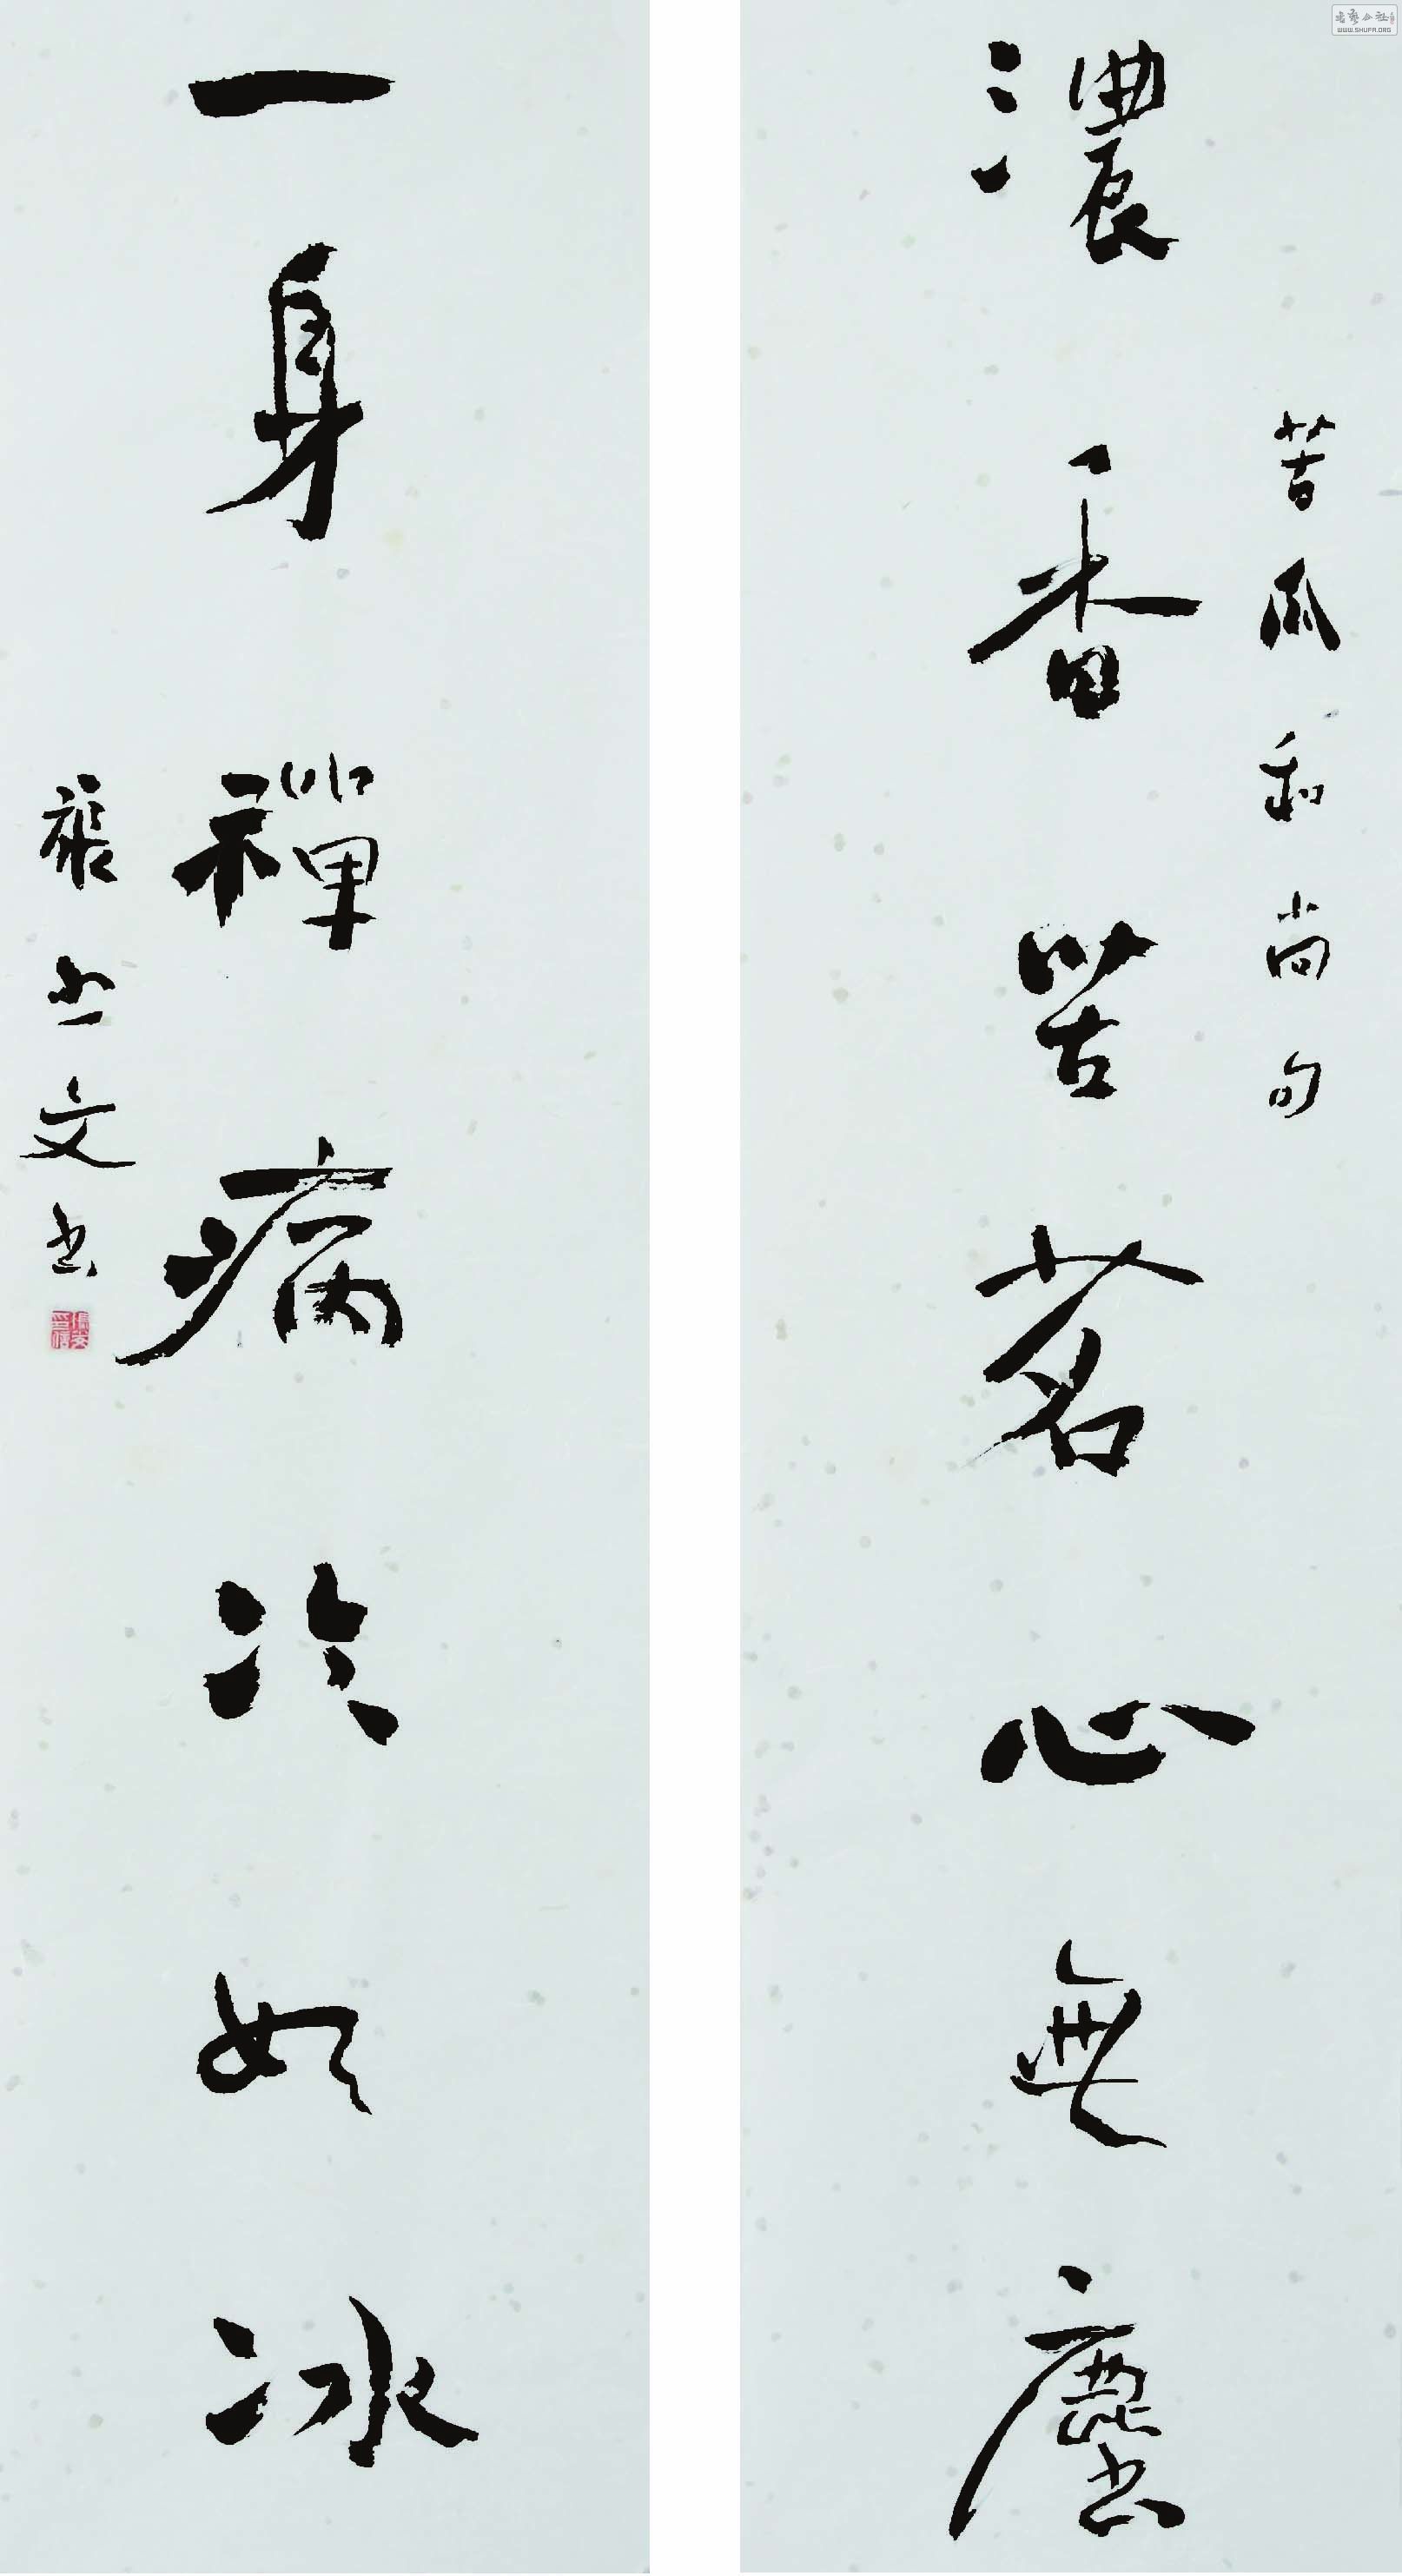 苦瓜和尚句
濃香苦茗心無塵
一身禪病冷如冰
文书
書藝公社
WWW.SHUFA.ORG